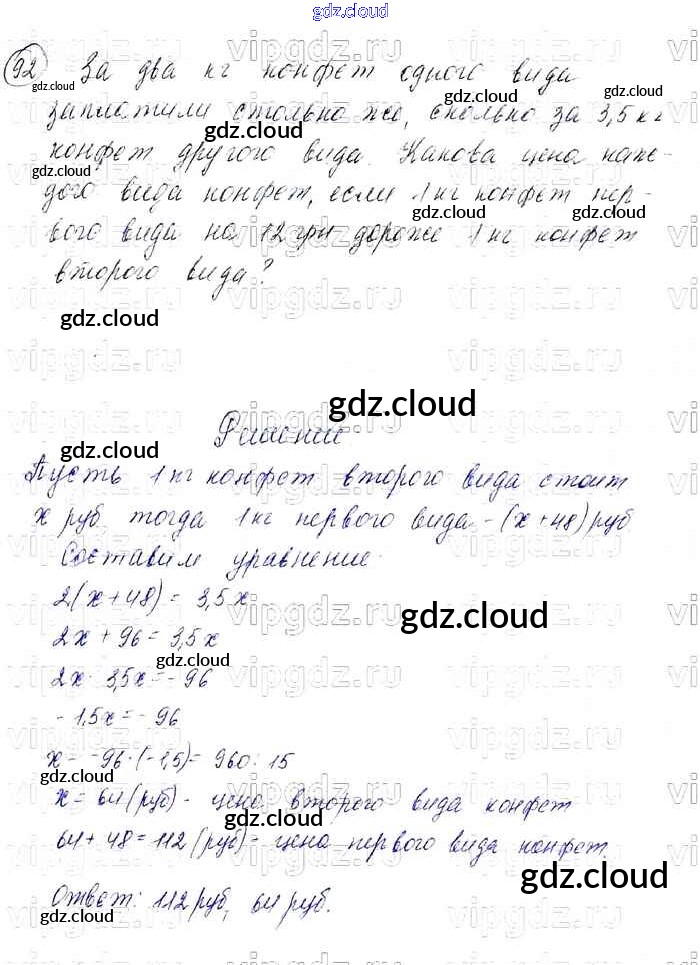 gdz.cloud
92 За два кг конфет одного вида
gdz.cloud gdz.cloud
заплатили столько же, сколько за 3,5 кг
gdz.cloud gdz.cloud
конфет другого вида. Какова цена каж-
gdz.cloud
дого вида конфет, если 1 кг конфет пер-
gdz.cloud gdz.cloud
вого вида на 12 грн дороже 1 кг конфет
второго вида?
gdz.cloud
gdz.cloud
Решение
gdz.cloud
Пусть 1 кг конфет второго вида стоит
x руб тогда 1 кг первого вида - (x + 48) руб
Составим уравнение
2(x + 48) = 3,5x
gdz.cloud
2x + 96 = 3,5x
gdz.cloud
2x - 3,5x = - 96
- 1,5x = - 96
x = -96 : (-1,5) = 960 : 15
gdz.cloud
x = 64 (руб) - цена второго вида конфет
gdz.cloud
64 + 48 = 112 (руб) - цена первого вида конфет.
gdz.cloud
Ответ: 112 руб, 64 руб.
gdz.cloud
vipgdz.ru